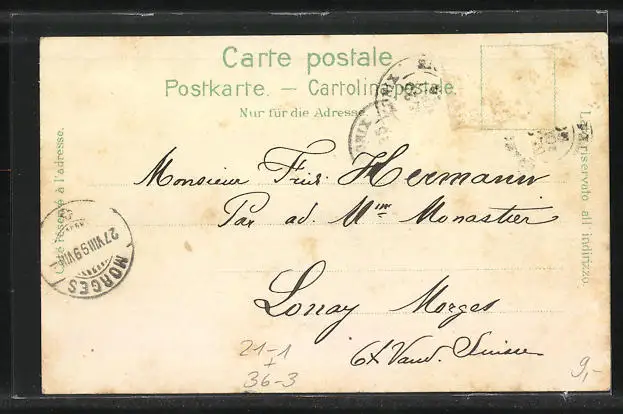 Carte postale
Postkarte. — Cartolina postale.
Nur für die Adresse
Côté réservé à l'adresse.
Lato riservato all indirizzo.
Monsieur Hermann
Par ad. Mme Monastier
Lonay Morges
Ct Vaud. Suisse
27 VIII 99 VII
MORGES
21-1
+
36-3
9,-